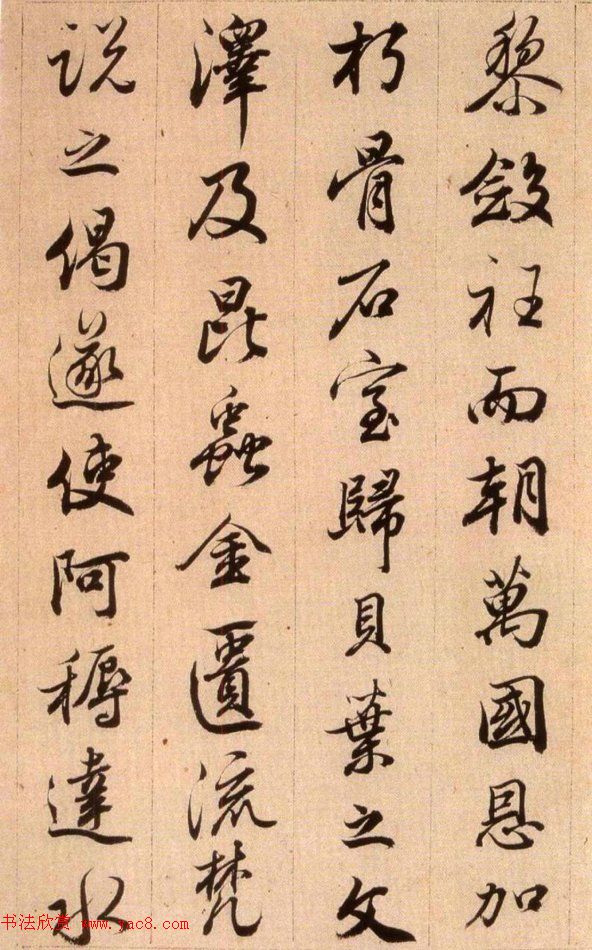 黎斂衽而朝萬國恩加
朽骨石室歸貝葉之文
澤及昆蟲金匱流梵
説之偈遂使阿耨達水
书法欣赏 www.yac8.com